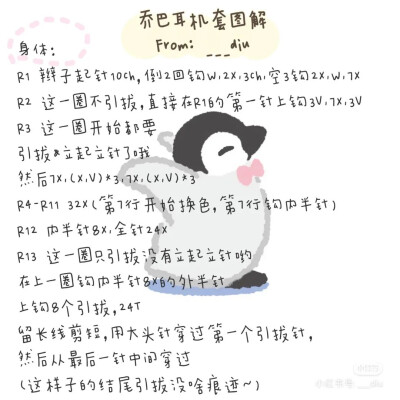 乔巴耳机套图解
From: ___diu
身体:
R1 辫子起针10ch, 倒2回钩w,2x,3ch,空3钩2x,w,7x
R2 这一圈不引拔,直接在R1的第一针上钩3V,7x,3V
R3 这一圈开始都要
引拔&立起立针了哦
然后7x,(x,V)*3,7x,(x,V)*3
R4-R11 32x(第7行开始换色,第7行钩内半针)
R12 内半针8x,全针24x
R13 这一圈只引拔没有立起立针哟
在上一圈钩内半针8x的外半针
上钩8个引拔,24T
留长线剪短,用大头针穿过第一个引拔针,
然后从最后一针中间穿过
(这样子的结尾引拔没啥痕迹~)
小红书号:___diu